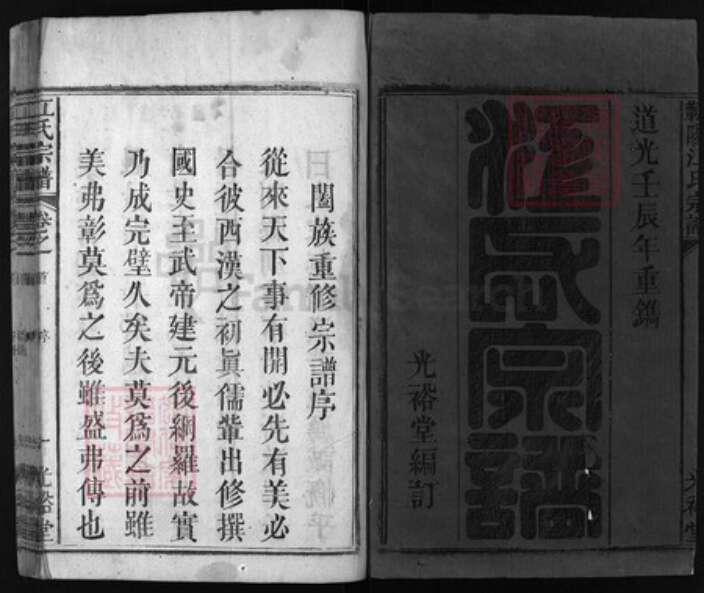 道光壬辰年重鐫
江氏宗譜
光裕堂編訂
江氏宗譜
光裕堂
闔族重修宗譜序
從來天下事有開必先有美必
合彼西漢之初眞儒輩出修撰
國史至武帝建元後網羅故實
乃成完璧久矣夫莫爲之前雖
美弗彰莫爲之後雖盛弗傳也
江氏宗譜
卷之
光裕堂